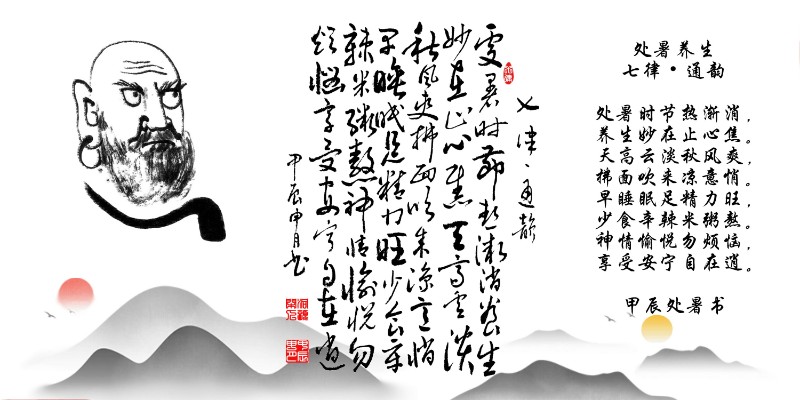 处暑养生
七律•通韵
处暑时节热渐消，
养生妙在止心焦。
天高云淡秋风爽，
拂面吹来凉意悄。
早睡眠足精力旺，
少食辛辣米粥熬。
神情愉悦勿烦恼，
享受安宁自在逍。
甲辰处暑书
七律·通韵
处暑时节热渐消养生
妙在止心焦天高云淡
秋风爽拂面吹来凉意悄
早睡眠足精力旺少食辛
辣米粥熬神情愉悦勿
烦恼享受安宁自在逍
甲辰申月书